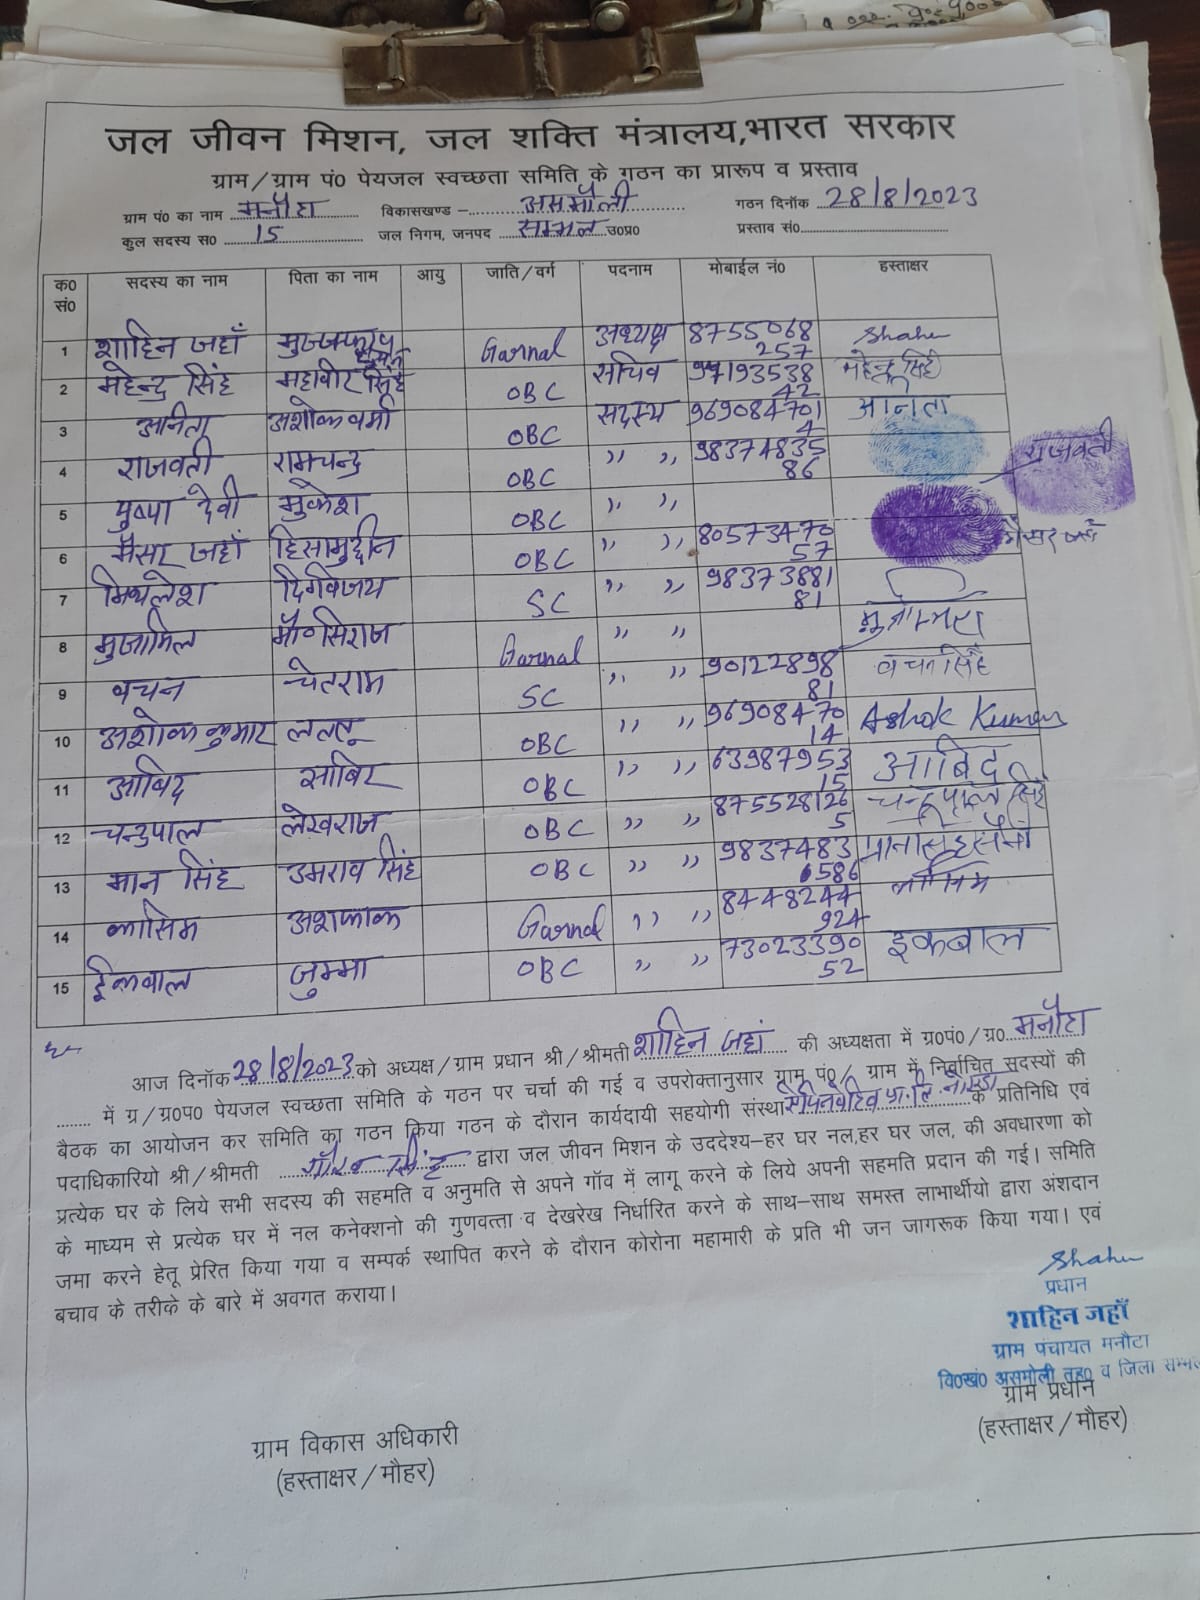 जल जीवन मिशन, जल शक्ति मंत्रालय,भारत सरकार
ग्राम/ग्राम पं0 पेयजल स्वच्छता समिति के गठन का प्रारूप व प्रस्ताव
ग्राम पं0 का नाम मनौटा विकासखण्ड – असमौली गठन दिनॉक 28/8/2023
कुल सदस्य स0 15 जल निगम, जनपद सम्भल उ0प्र0 प्रस्ताव सं0
क0 सं0 सदस्य का नाम पिता का नाम आयु जाति/वर्ग पदनाम मोबाईल नं0 हस्ताक्षर
1 शाहिन जहाँ Garnal अध्यक्ष 8755068257 Shahin
2 महेन्द्र सिंह महावीर सिंह OBC सचिव महेन्द्र सिंह
3 अनिता अशोक वर्मा OBC सदस्य 9690847014 अनिता
4 राजवती रामचन्द्र OBC ,, ,, 9837483586 राजवती
5 पुष्पा देवी मुकेश OBC ,, ,,
6 मैसर जहां हिसामुद्दीन OBC ,, ,, 8057347057
7 मिथलेश दिग्विजय SC ,, ,, 9837388181
8 मुजामिल मौ० सिराज Garnal ,, ,,
9 वचन चेतराम SC ,, ,, 9012289881 वचन सिंह
10 अशोक कुमार लल्लू OBC ,, ,, 9690847014 Ashok Kumar
11 आबिद साबिर OBC ,, ,, 6398795315 आबिद
12 चन्द्रपाल लेखराज OBC ,, ,, 8755281265 चन्द्रपाल सिंह
13 मान सिंह उमराव सिंह OBC ,, ,, 9837483 6586 मानसिंह सैनी
14 कासिम अशफाक Garnal ,, ,, 8448244924 कासिम
15 ईकबाल जुम्मा OBC ,, ,, 7302339052 इकबाल
आज दिनॉक 28/8/2023 को अध्यक्ष/ग्राम प्रधान श्री/श्रीमती शाहिन जहां की अध्यक्षता में ग्र0पं0/ग्र0 मनौटा
में ग्र/ग्र0प0 पेयजल स्वच्छता समिति के गठन पर चर्चा की गई व उपरोक्तानुसार ग्राम पं0/ ग्राम में निर्वाचित सदस्यों की
बैठक का आयोजन कर समिति का गठन किया गठन के दौरान कार्यदायी सहयोगी संस्था के प्रतिनिधि एवं
पदाधिकारियो श्री/श्रीमती गौरव सिंह द्वारा जल जीवन मिशन के उददेश्य–हर घर नल,हर घर जल, की अवधारणा को
प्रत्येक घर के लिये सभी सदस्य की सहमति व अनुमति से अपने गॉव में लागू करने के लिये अपनी सहमति प्रदान की गई। समिति
के माध्यम से प्रत्येक घर में नल कनेक्शनो की गुणवत्ता व देखरेख निर्धारित करने के साथ–साथ समस्त लाभार्थीयो द्वारा अंशदान
जमा करने हेतू प्रेरित किया गया व सम्पर्क स्थापित करने के दौरान कोरोना महामारी के प्रति भी जन जागरूक किया गया। एवं
बचाव के तरीके के बारे में अवगत कराया।
Shahin
प्रधान
शाहिन जहाँ
ग्राम पंचायत मनौटा
वि०खं० असमोली तह० व जिला सम्भल
ग्राम प्रधान
(हस्ताक्षर/मौहर)
ग्राम विकास अधिकारी
(हस्ताक्षर/मौहर)